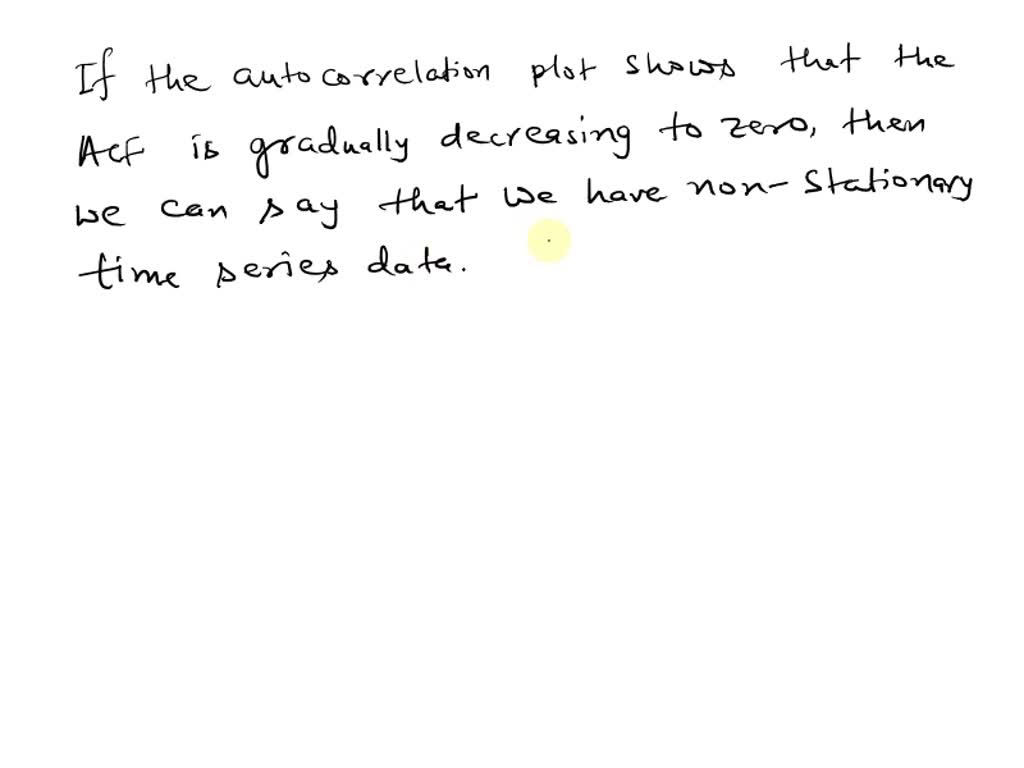 If the autocorrelation plot shows that the
ACF is gradually decreasing to zero, then
we can say that we have non-stationary
time series data.